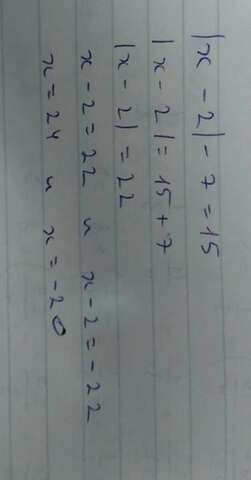 |x - 2| - 7 = 15
|x - 2| = 15 + 7
|x - 2| = 22
x - 2 = 22 u x - 2 = - 22
x = 24 u x = - 20